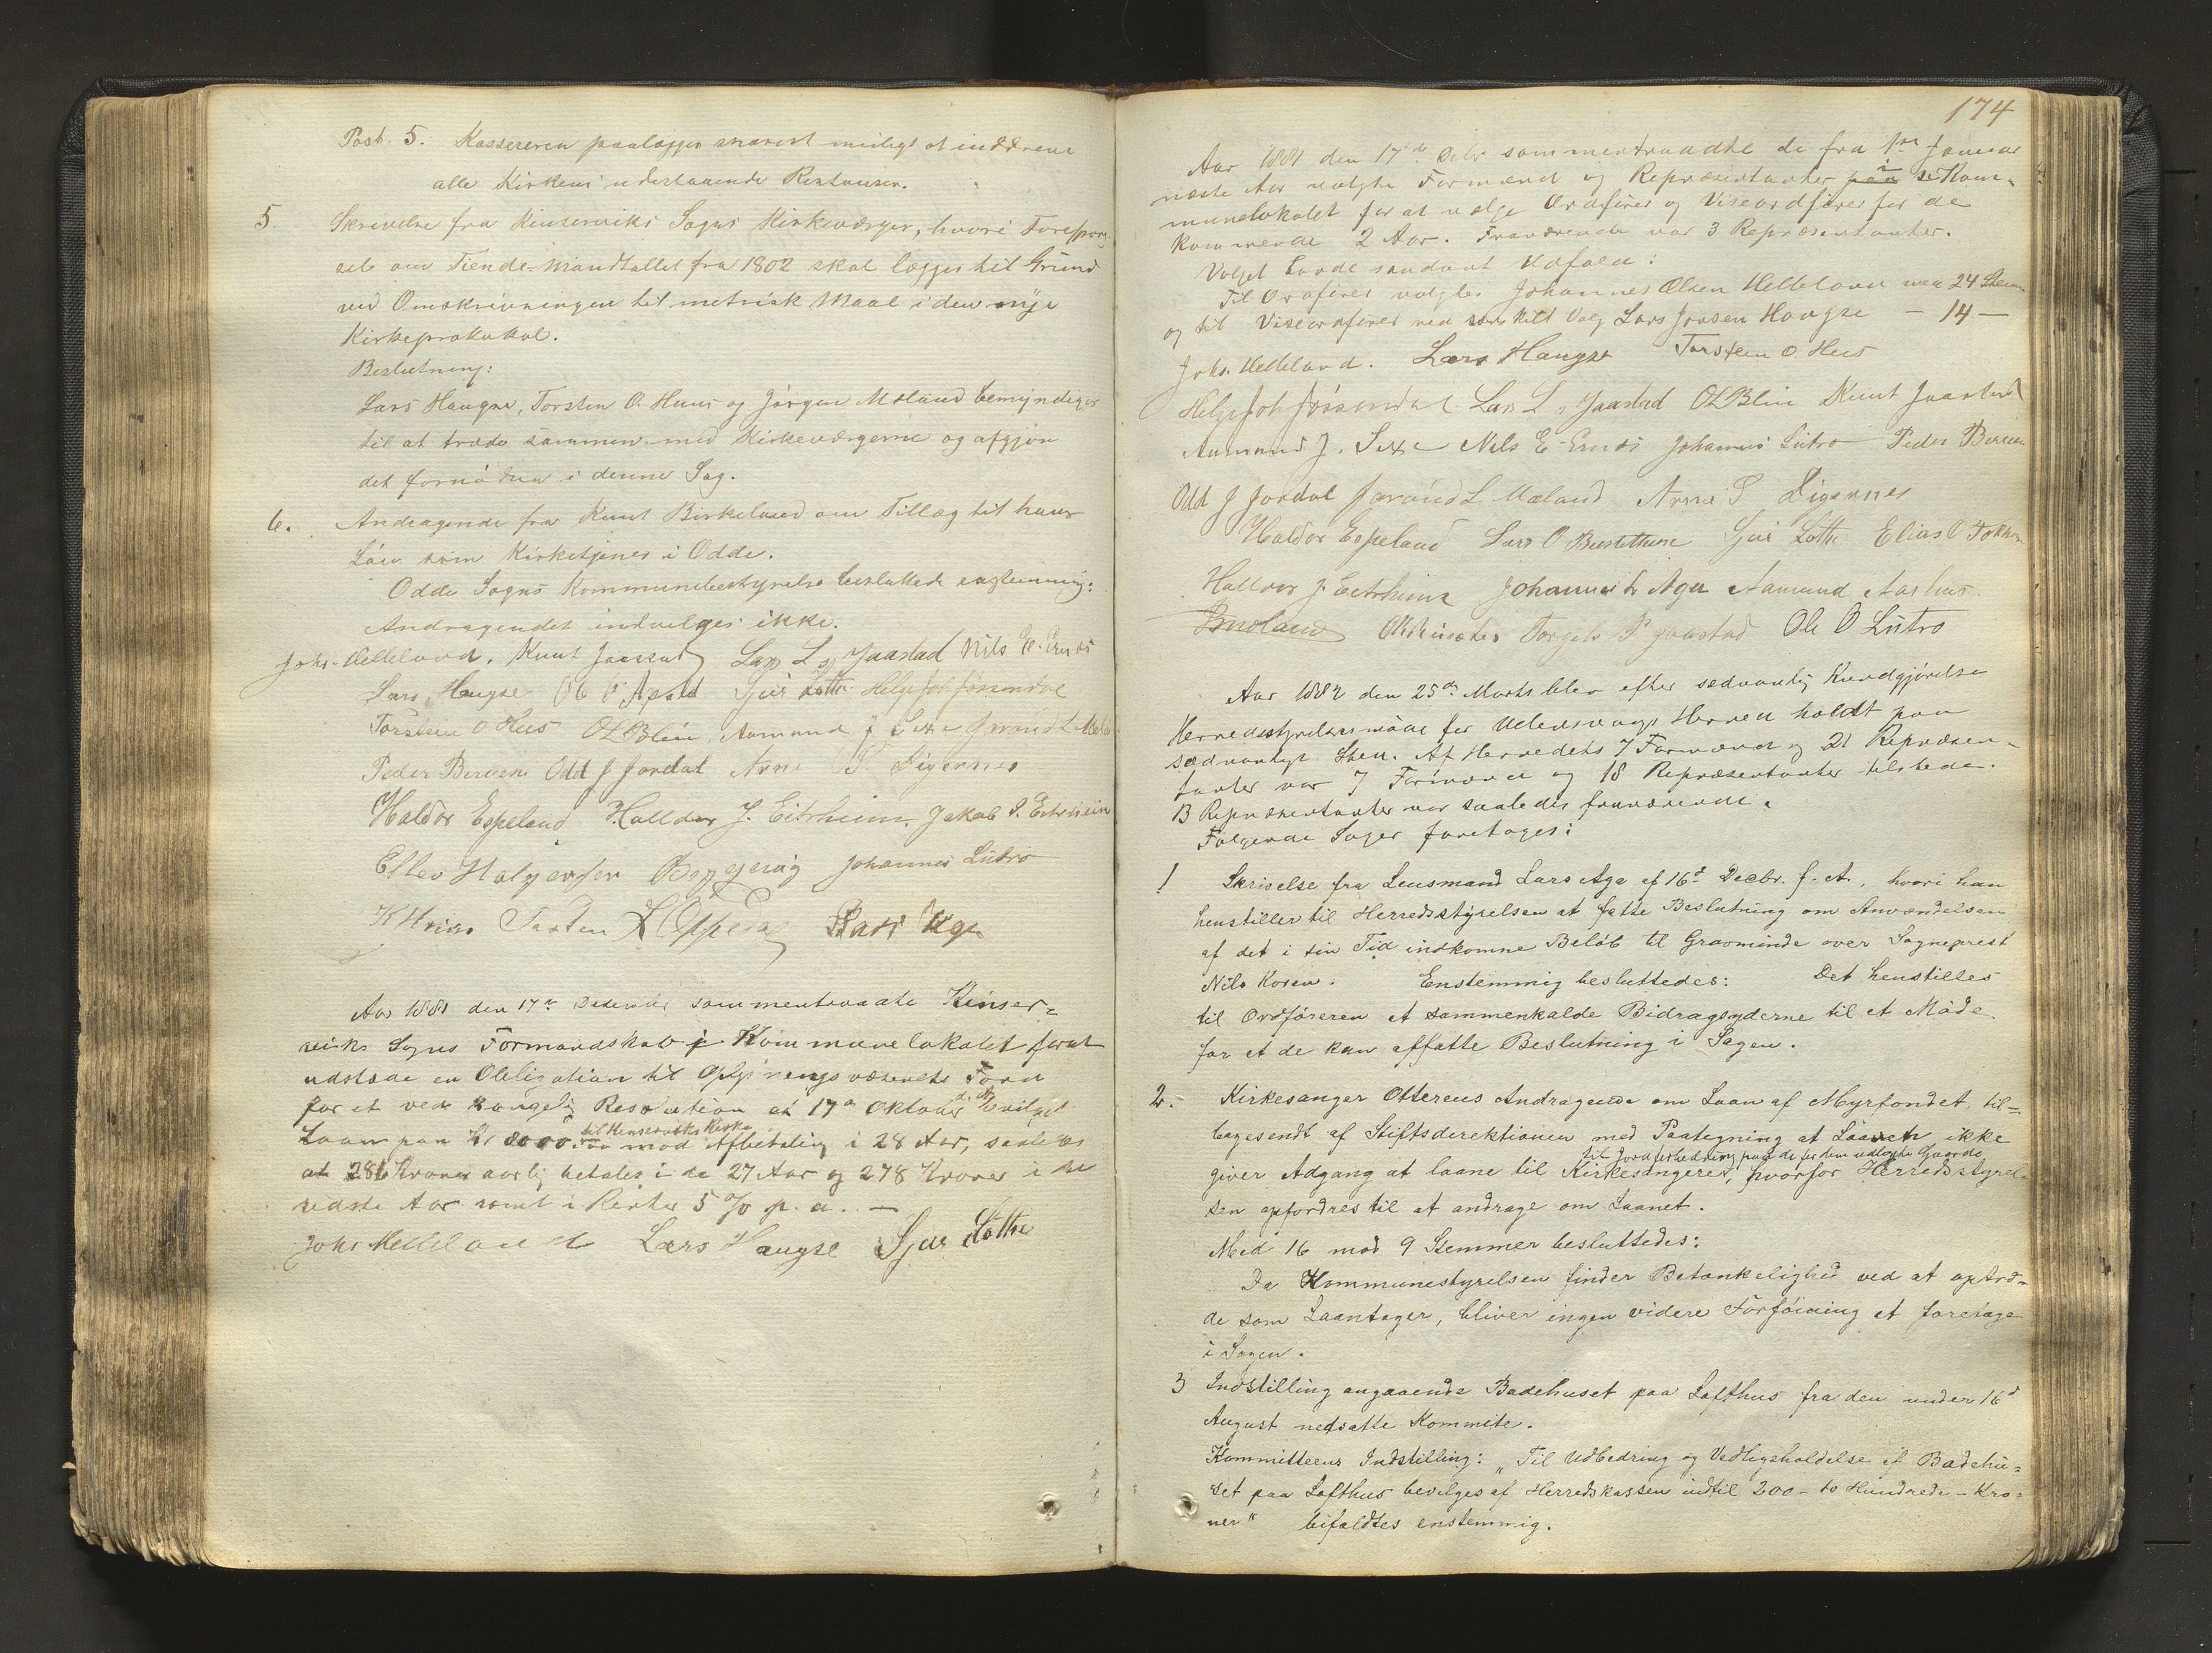 Post. 5. Kassereren paalægges snarest muligt at inddrive
alle Kirkens udestaaende Restanser.
5. Skrivelse fra Kinserviks Sogns Kirkeværger, hvori Forespørg-
sel om Tiende-Mandtallet fra 1802 skal lægges til Grund
ved Omskrivningen til metrisk Maal i den nye
Kirkeprotokol.
Beslutning:
Lars Haugse, Torsten O. Huus og Jørgen Moland bemyndiges
til at træde sammen med Kirkeværgerne og afgjøre
det fornødne i denne Sag.
6. Andragende fra Knut Birkeland om Tillæg til hans
Løn som Kirketjener i Odde.
Odde Sogns Kommunebestyrelse besluttede enstemmig:
Andragendet indvilges ikke.
Johs. Helleland. Knut Jaastad Lars L. Jaastad Nils E. Ernæs
Lars Haugse Ole O Apold Sjur Lothe Helge Joh Jøssendal
Torstein O Hus OLBlie Aamund J Sexe Jørand L Mæland
Peder Berven Odd J Jordal Arne S. Digernes
Haldor Espeland Halldor J. Eitrheim. Jakob S. Eitrheim
Ellev Halgersen Johannes Lutro
Torsten L Oppedal Lars Aga
Aar 1881 den 17de December sammentraadte Kinser-
viks Sogns Formandskab i Kommunelokalet forat
udstede en Obligation til Oplysningsvæsenets Fond
for et ved kongelig Resolution af 17de Oktober d. A. bevilget
Laan paa Kr 4000 til Kinserviks Kirke mod Afbetaling i 28 Aar, saaledes
at 286 Kroner aarlig betales i de 27 Aar og 278 Kroner i det
sidste Aar samt i Renter 5 % p. a. —
Johs Helleland Lars Haugse Sjur Lothe
174
Aar 1881 den 17de Debr sammentraadte de fra 1ste Januar
næste Aar valgte Formænd og Repræsentanter paa i Kom-
munelokalet for at vælge Ordfører og Viseordfører for de
kommende 2 Aar. Fraværende var 3 Repræsentanter.
Valget havde saadant Udfald:
Til Ordfører valgtes Johannes Olsen Helleland med 24 Stemmer
og til Viseordfører ved særskilt Valg Lars Jonsen Haugse — 14 —
Johs. Helleland. Lars Haugse Torstein O Hus
Helge Joh Jøssendal Lars L. Jaastad OLBlie Knut Jaastad
Aamund J. Sexe Nils E Ernæs Johannes Lutro Peder Berven
Odd J Jordal Jørand L Mæland Arne S Digernes
Haldor Espeland Lars O Bustethun Sjur Lothe Elias O
Halldor J. Eitrheim Johannes L Aga Aamund Aarhus.
Torgels P Jaastad Ole O Lutro
Aar 1882 den 25de Marts blev efter sædvanlig Kundgjørelse
Herredsstyrelsesmøde for Ullensvangs Herred holdt paa
sædvanligt Sted. Af Herredets 7 Formænd og 21 Repræsen-
tanter var 7 Formænd og 18 Repræsentanter tilstede.
3 Repræsentanter var saaledes fraværende.
Følgende Sager foretoges:
1 Skrivelse fra Lensmand Lars Aga af 16de Decbr. f. A., hvori han
henstiller til Herredsstyrelsen at fatte Beslutning om Anvendelsen
af det i sin Tid indkomne Beløb til Gravminde over Sogneprest
Nils Koren. Enstemmig besluttedes: Det henstilles
til Ordføreren at sammenkalde Bidragsyderne til et Møde
for at de kan affatte Beslutning i Sagen.
2. Kirkesanger Ottereus Andragende om Laan af Myrfondet, til-
bagesendt af Stiftsdirektionen med Paategning at Loven ikke
giver Adgang at laane til Kirkesangeres til Jordforbedring paa de for dem udlagte Gaarde, hvorfor Herredsstyrel-
sen opfordres til at andrage om Laanet.
Med 16 mod 9 Stemmer besluttedes:
Da Kommunestyrelsen finder Betænkelighed ved at optræ-
de som Laantager, bliver ingen videre Forføining at foretage
i Sagen.
3 Indstilling angaaende Badehuset paa Lofthus fra den under 16d
August nedsatte Kommite.
Kommitteens Indstilling: "Til Udbedring og Vedligeholdelse af Badehu-
set paa Lofthus bevilges af Herredskassen indtil 200 – to Hundrede – Kro-
ner" bifaldtes enstemmig.